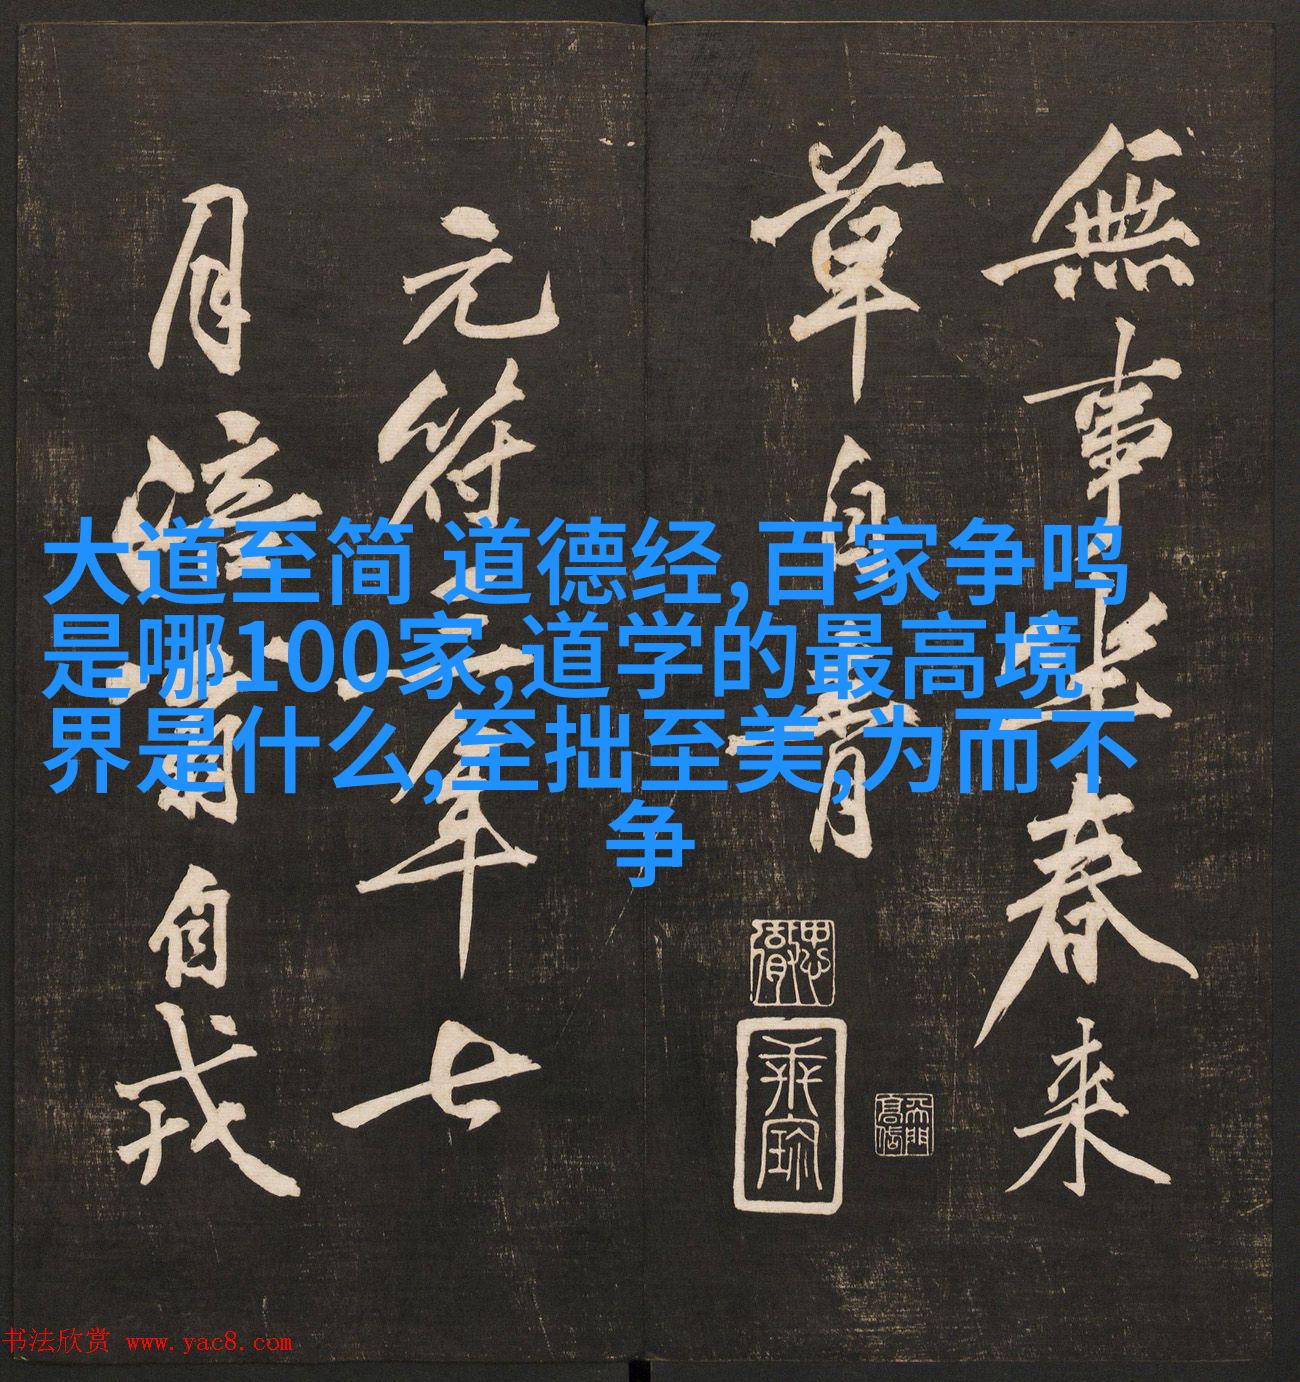 無事坐春来
草自青
元符三年七
月涪翁自戎
大道至简 道德经,百家争鸣
是哪100家,道学的最高境
界是什么,至拙至美,为而不
争
书法欣赏 www.yac8.com